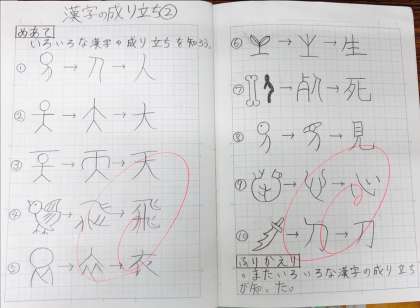 漢字の成り立ち②
めあて
いろいろな漢字の成り立ちを知ろう。
① → → 人
② → → 大
③ → → 天
④ → → 飛
⑤ → → 衣
⑥ → → 生
⑦ → → 死
⑧ → → 見
⑨ → → 心
⑩ → → 刀
ふりかえり
またいろいろな漢字の成り立ち
が知った。